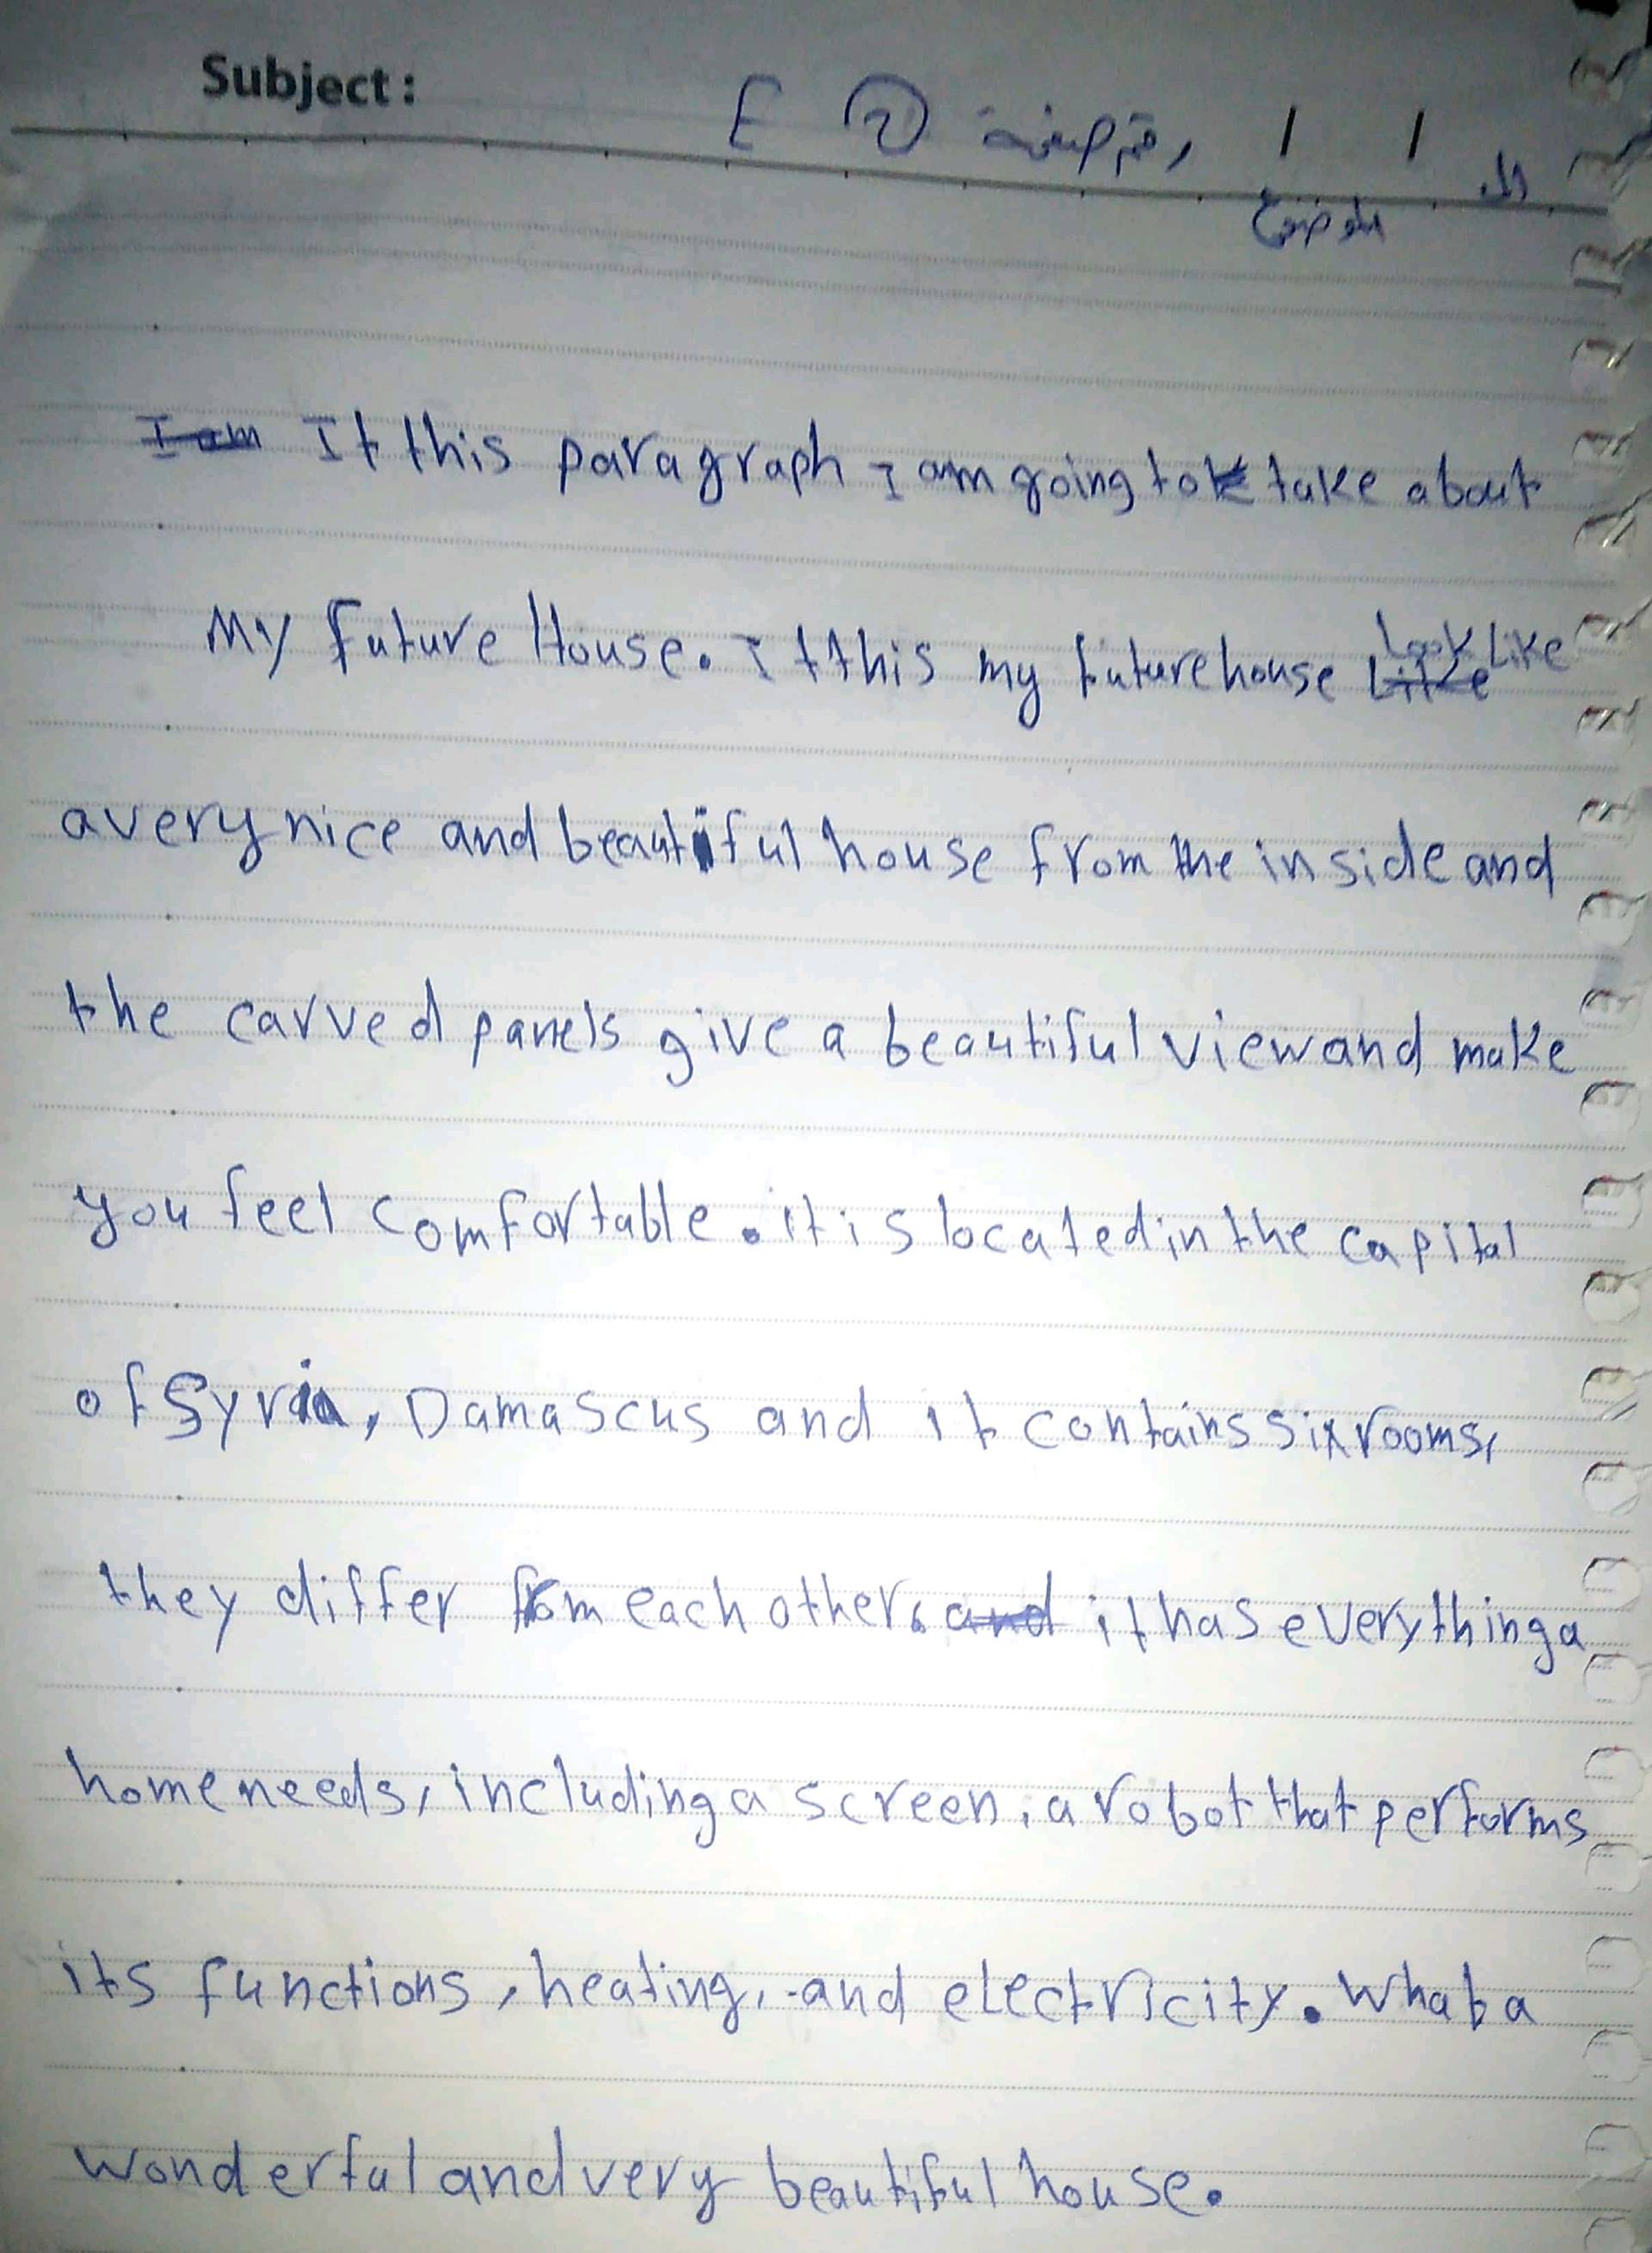 Subject :
E ② رقم صفحة / / ال
الموضوع
I am It this paragraph I am going to take about
My future House. It this my future house Like Look Like
a very nice and beautiful house from the inside and
the carved panels give a beautiful view and make
you feel comfortable. it is located in the capital
of Syria, Damascus and it contains six rooms,
they differ from each other. and it has everything a
home needs, including a screen, a robot that performs
its functions, heating, and electricity. What a
wonderful and very beautiful house.